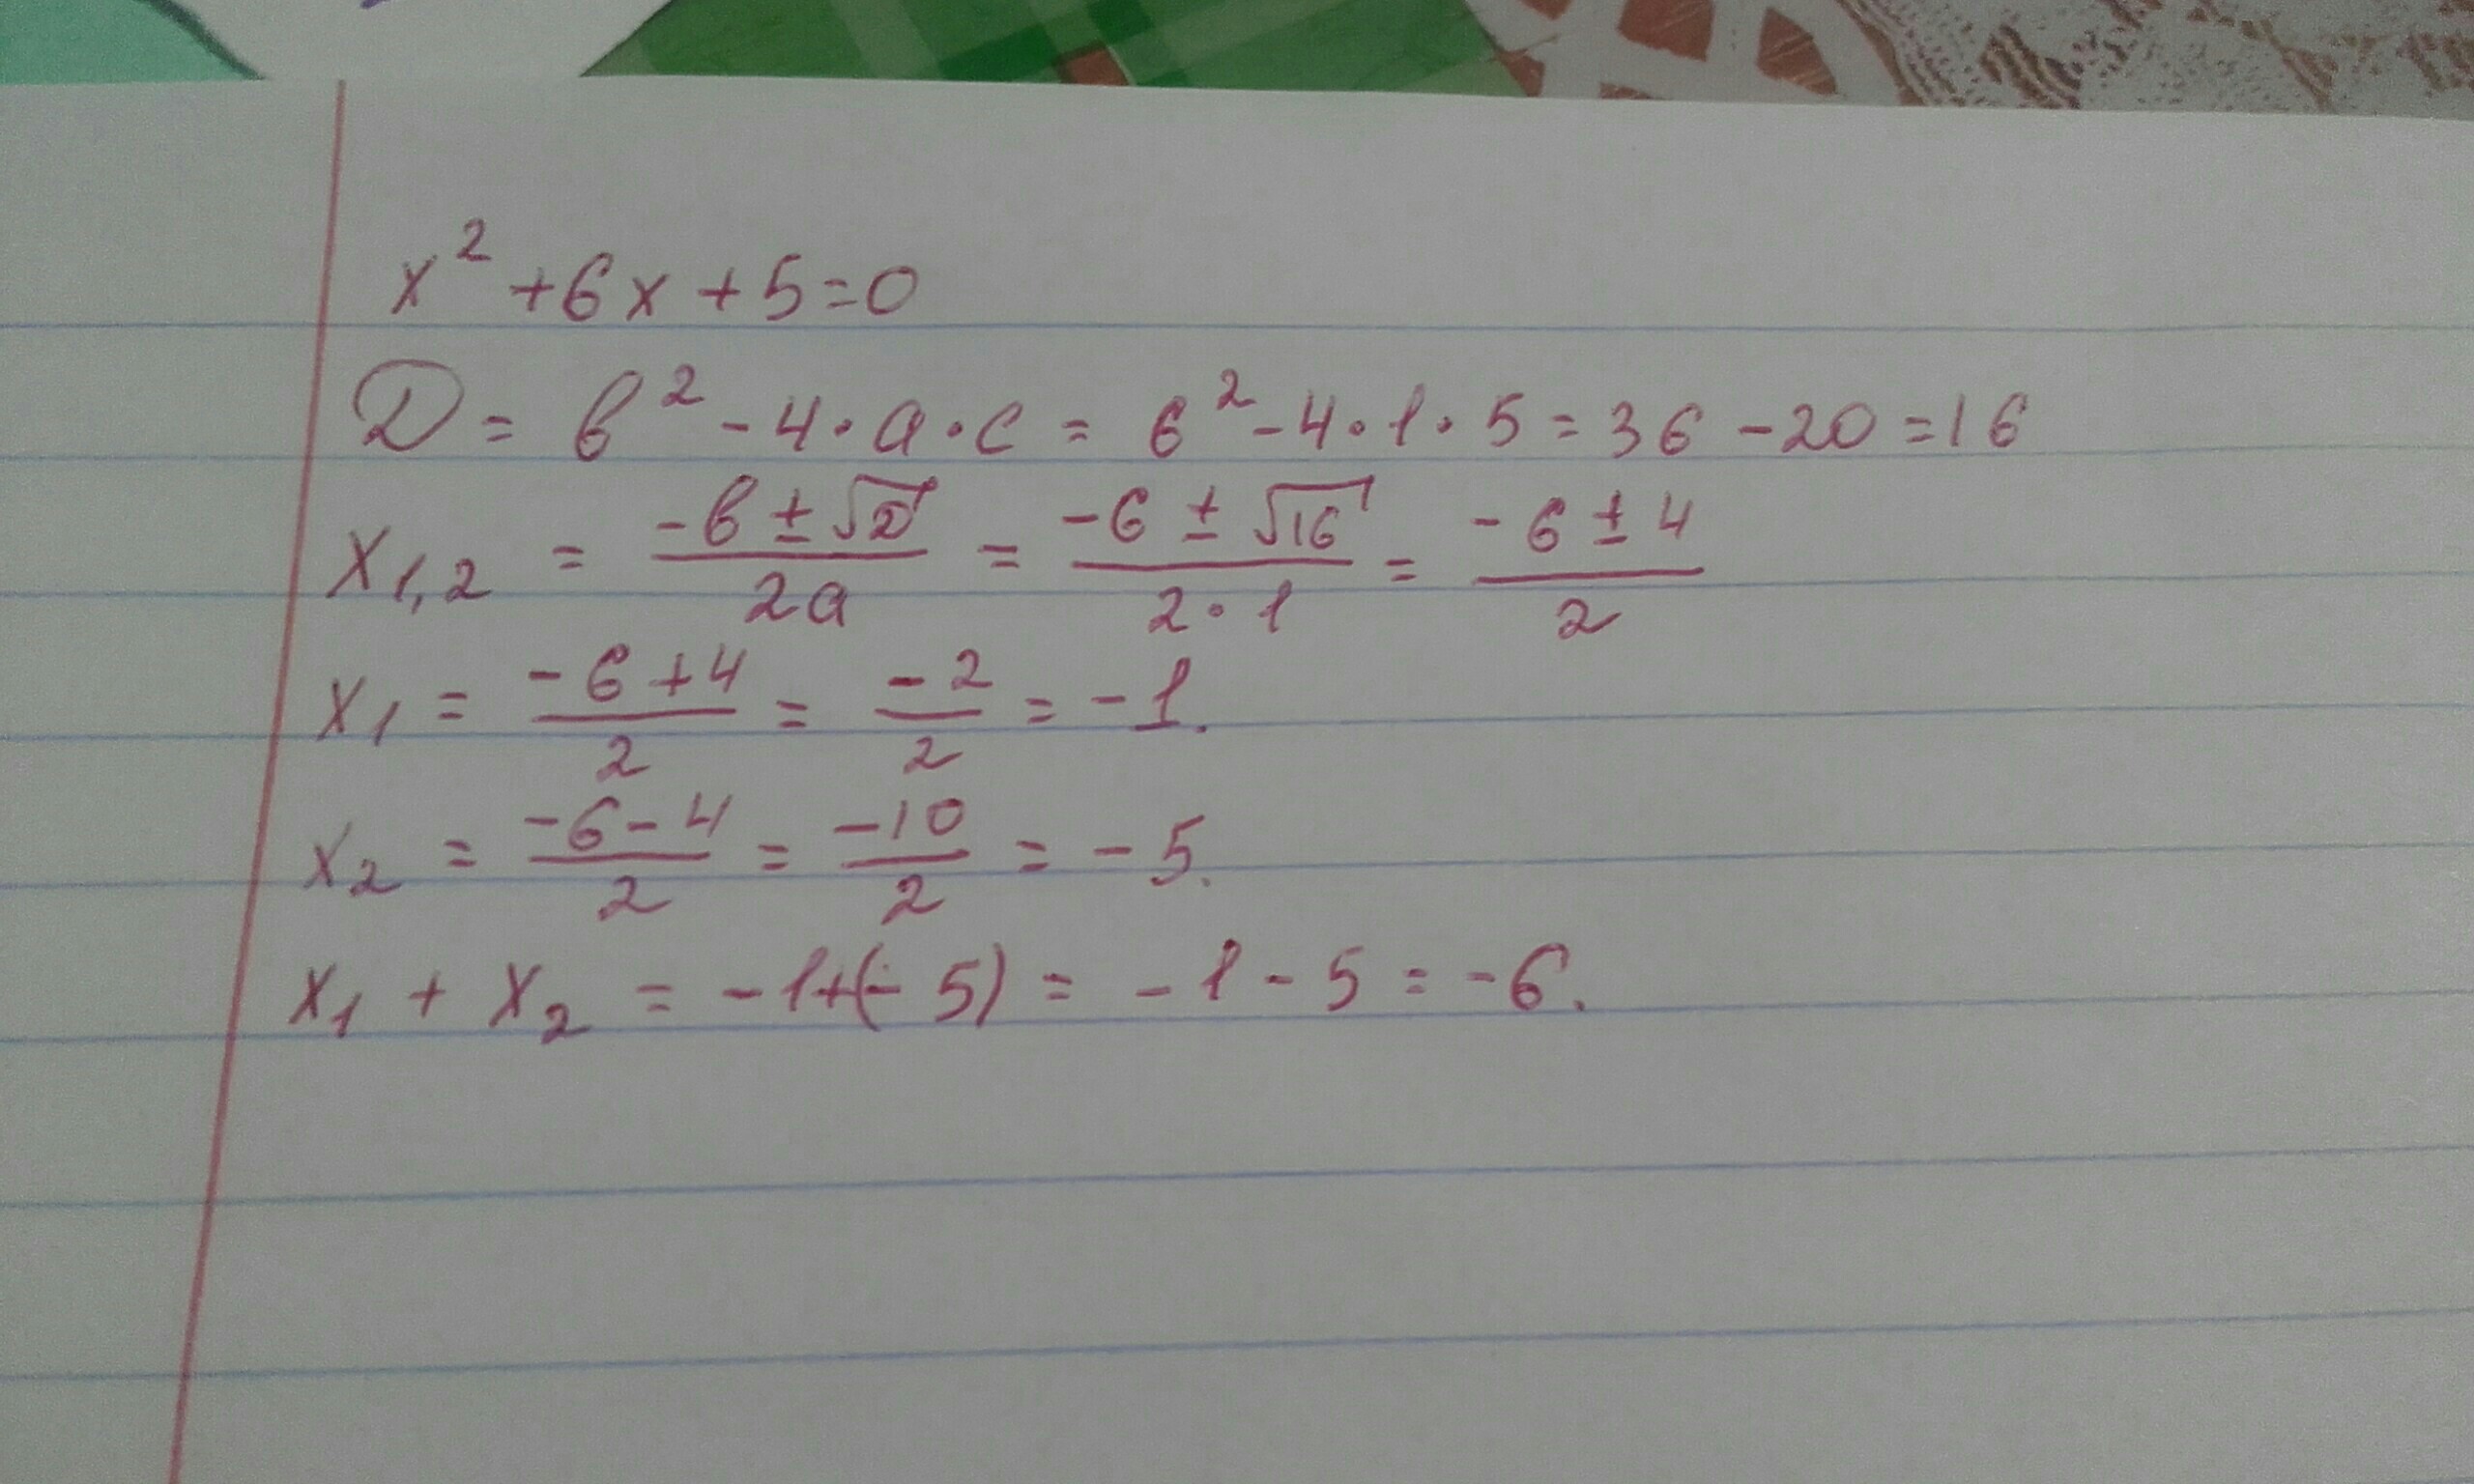 x² + 6x + 5 = 0
D = b² - 4·a·c = 6² - 4·1·5 = 36 - 20 = 16
x₁,₂ = (-b ± √D)/(2a) = (-6 ± √16)/(2·1) = (-6 ± 4)/2
x₁ = (-6 + 4)/2 = -2/2 = -1.
x₂ = (-6 - 4)/2 = -10/2 = -5.
x₁ + x₂ = -1 + (-5) = -1 - 5 = -6.